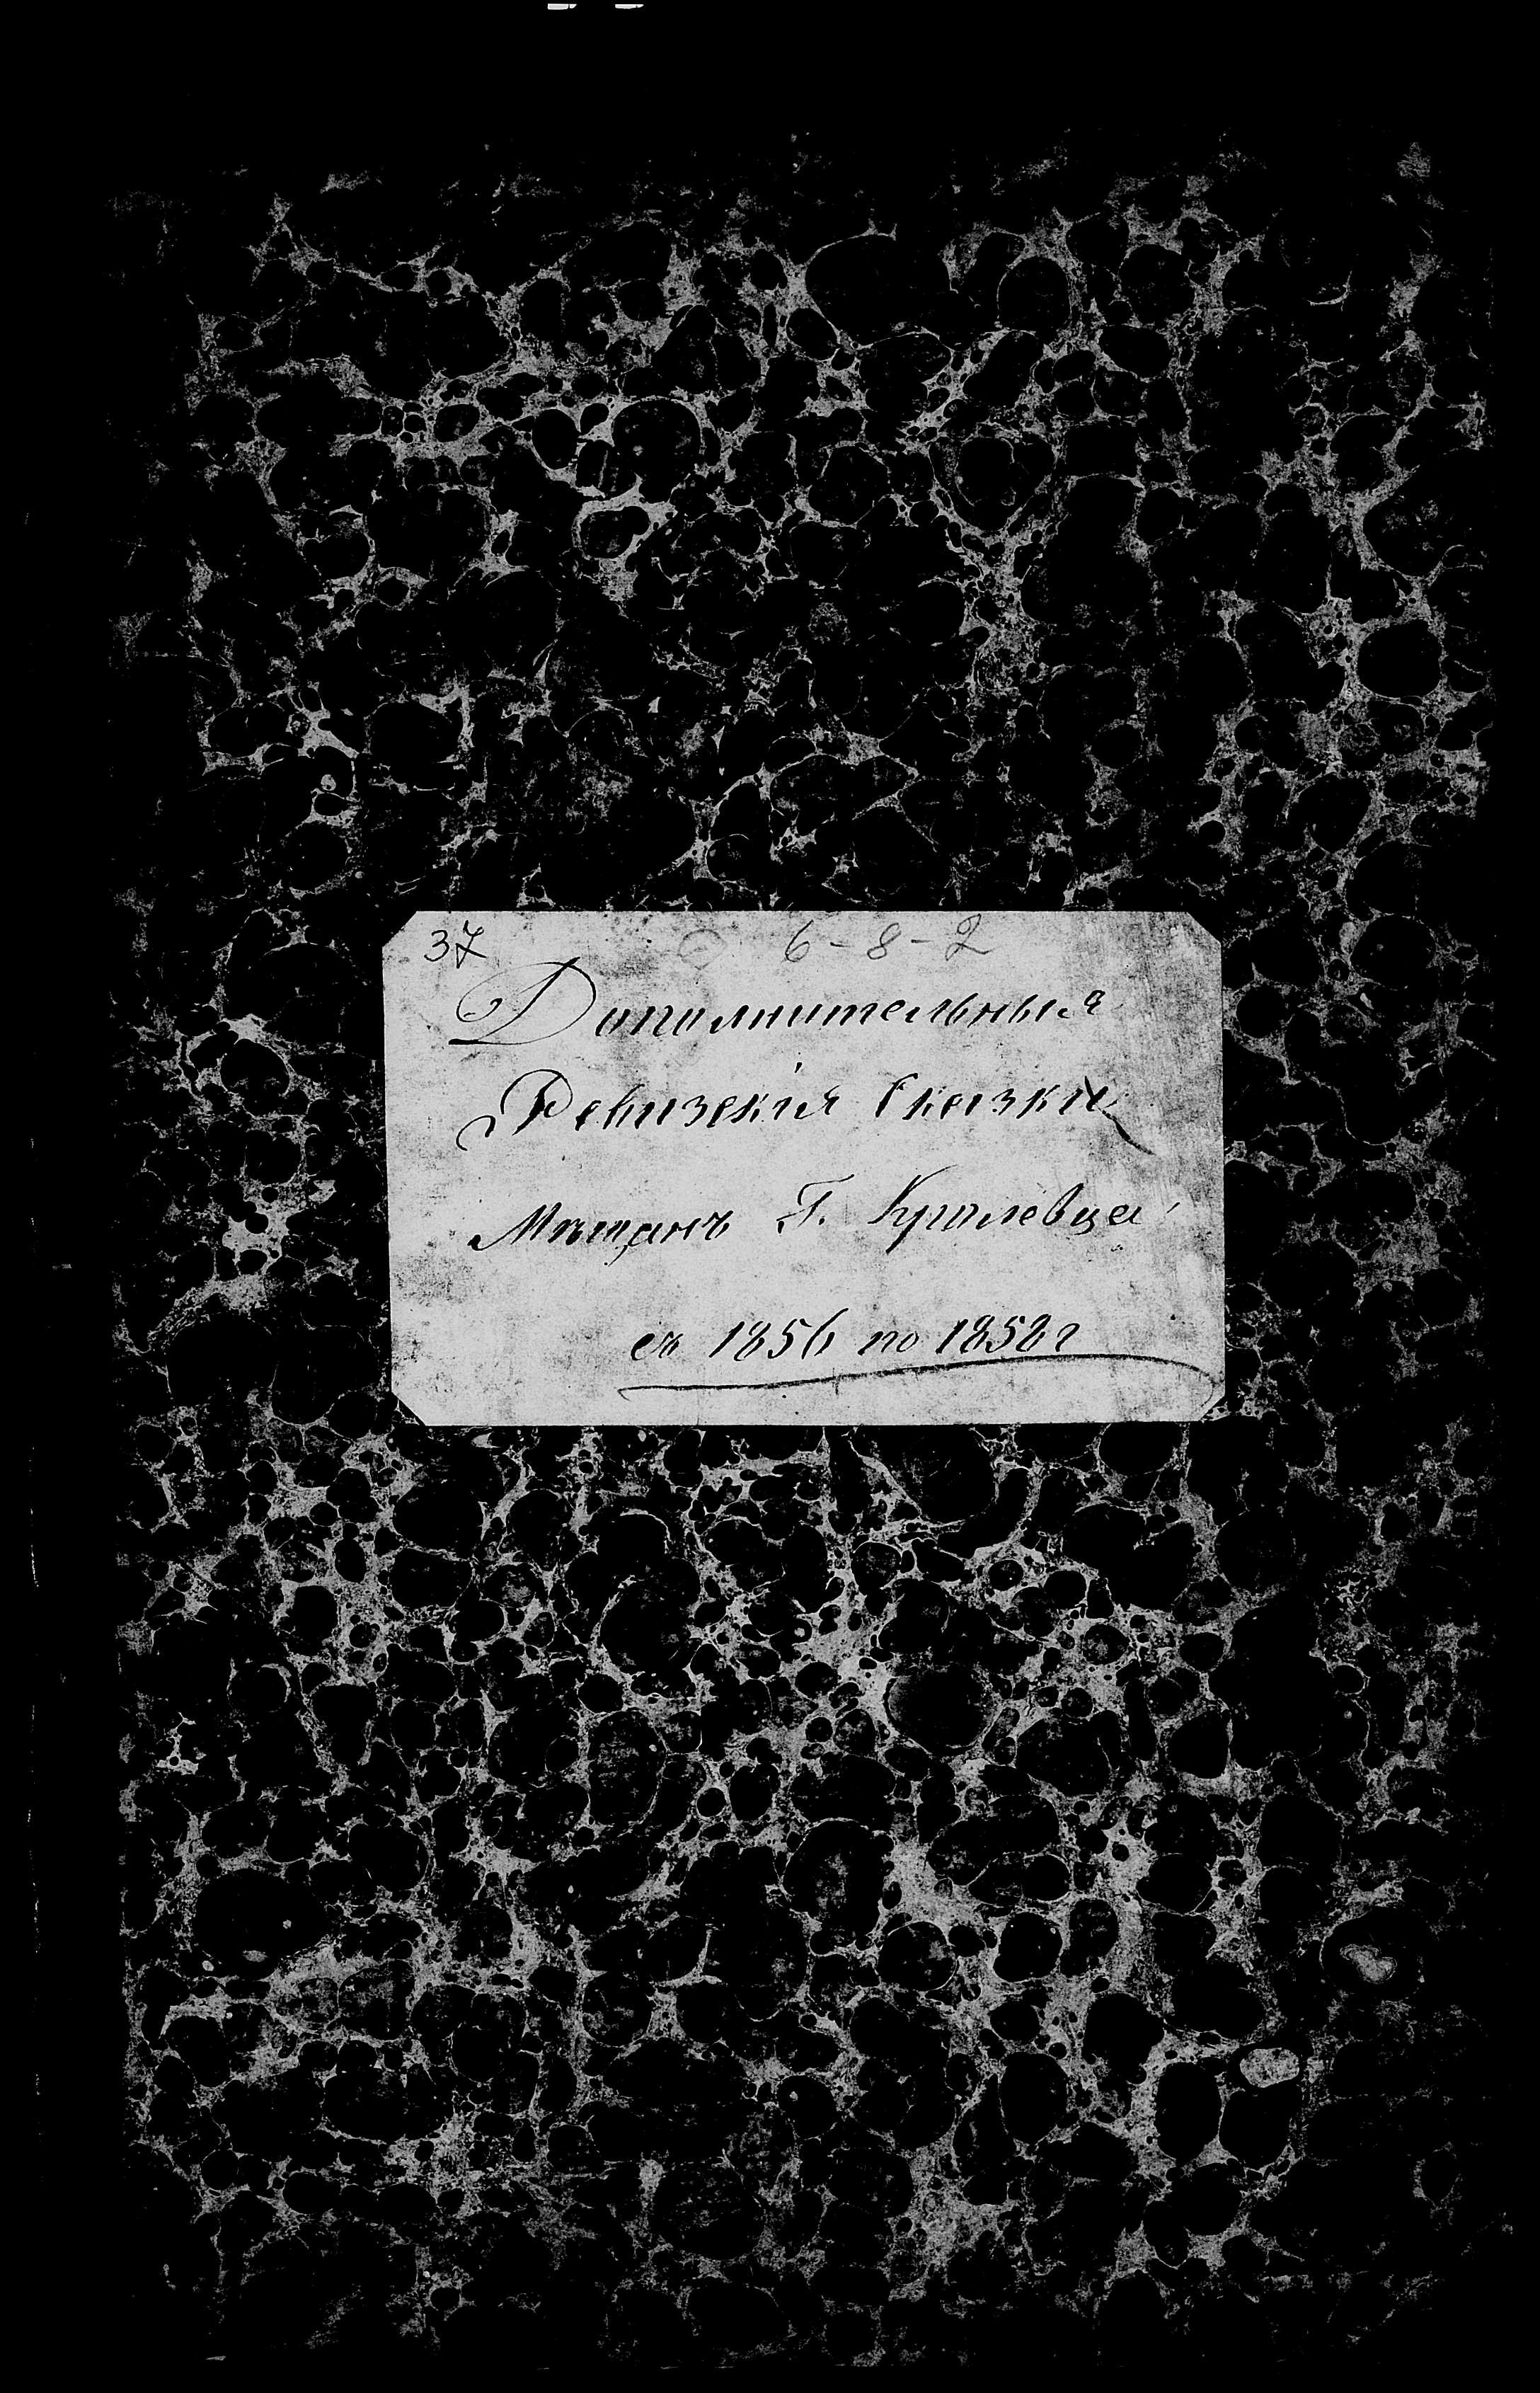 37 6-8-2
Дополнительныя
Ревизскія Сказки
Мѣщанъ Г. Кролевца
съ 1856 по 1858 г